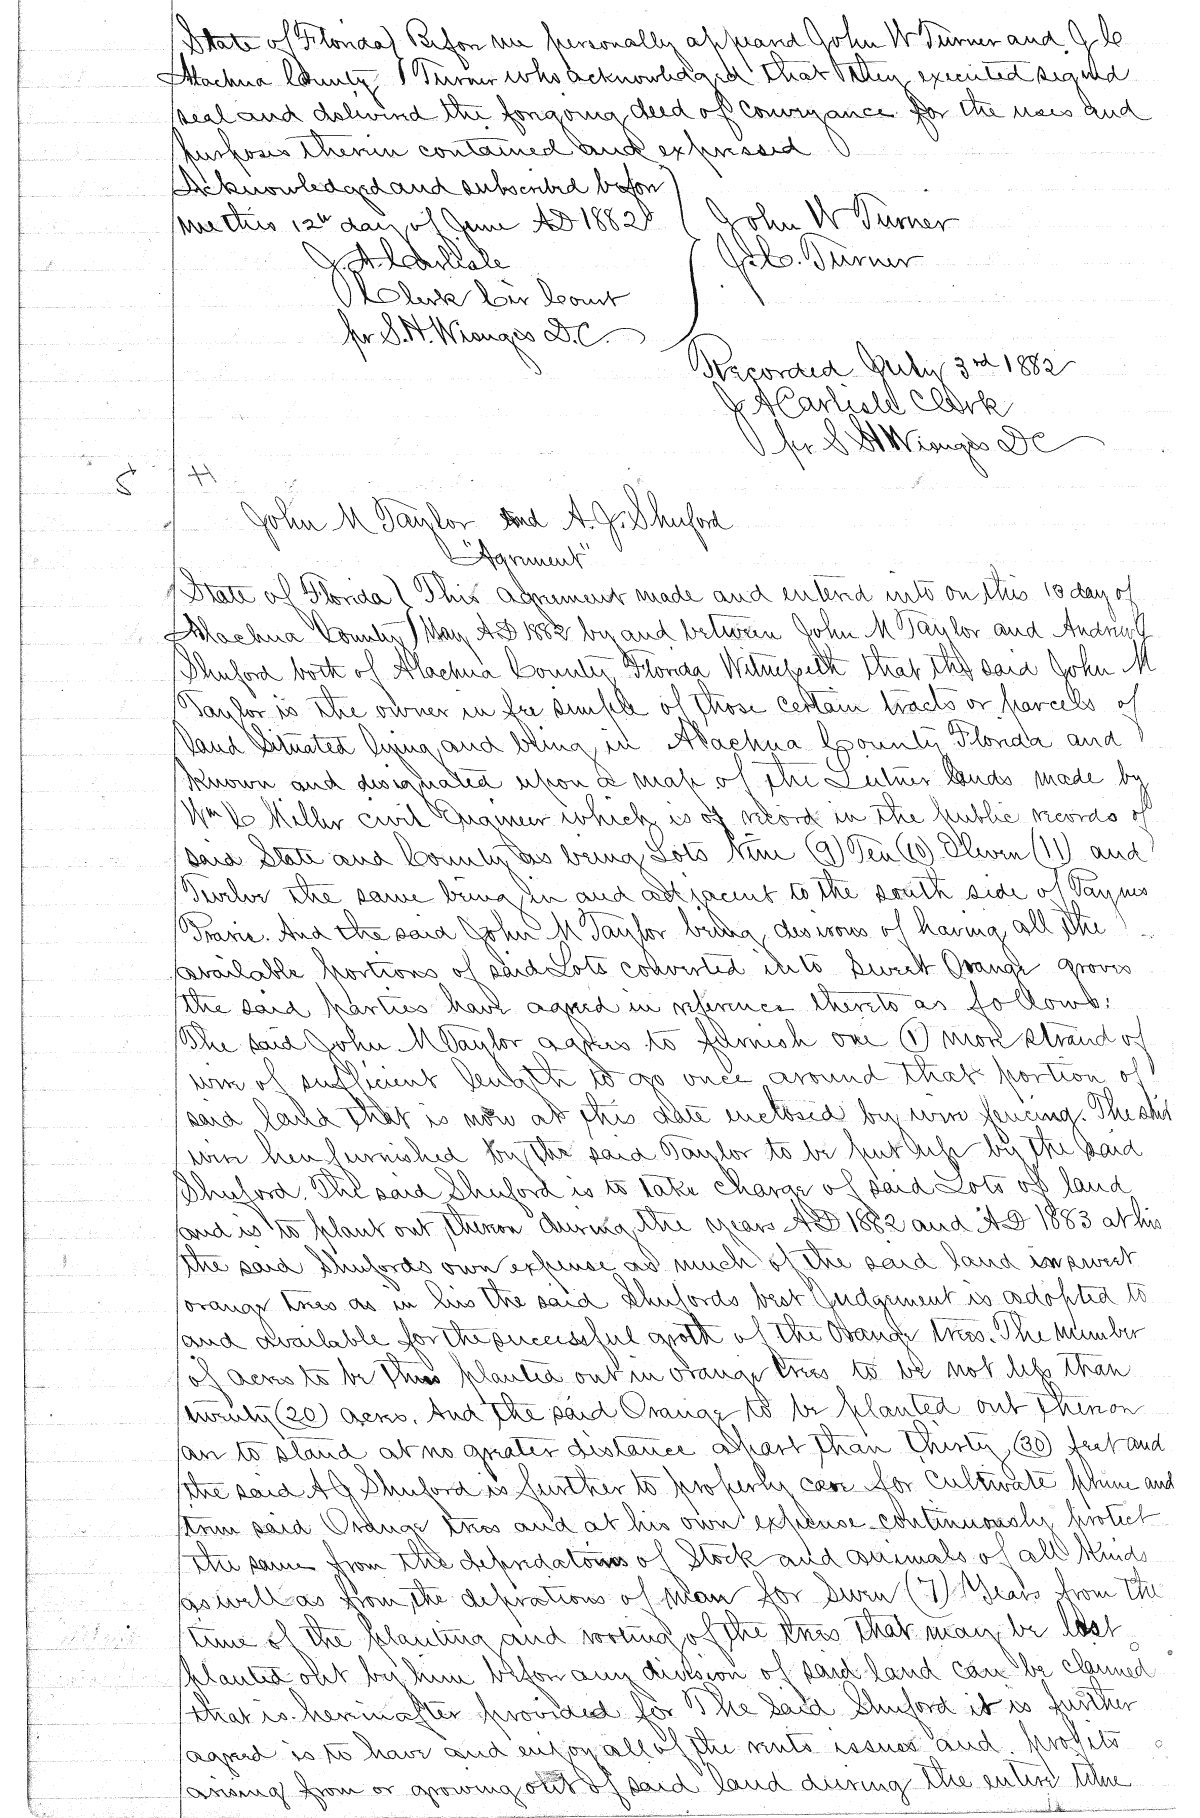 State of Florida } Before me personally appeared John W Turner and J. C.
Alachua County } Turner who acknowledged that they executed signed
seal and delivered the foregoing deed of conveyance for the uses and
purposes therein contained and expressed
Acknowledged and subscribed before
me this 12th day of June AD 1882 John W Turner
J. A. Carlisle J. C. Turner
Clerk Cir Court
pr S. H. Wienges D.C.
Recorded July 3rd 1882
J A Carlisle Clerk
pr S H Wienges DC
5 H
John M Taylor and A. J. Shuford
"Agreement"
State of Florida } This agreement made and entered into on this 13 day of
Alachua County } May AD 1882 by and between John M Taylor and Andrew J
Shuford both of Alachua County Florida Witnesseth that the said John M
Taylor is the owner in fee simple of those certain tracts or parcels of
land situated lying and being in Alachua County Florida and
known and designated upon a map of the Lutner lands made by
Wm C Miller civil Engineer which is of record in the public records of
said State and County as being Lots Nine (9) Ten (10) Eleven (11) and
Twelve the same being in and adjacent to the south side of Paynes
Prarie. And the said John M Taylor being desirous of having all the
available portions of said Lots converted into sweet Orange groves
the said parties have agreed in reference thereto as follows:
The said John M Taylor agrees to furnish one (1) more strand of
wire of sufficient length to go once around that portion of
said land that is now at this date inclosed by wire fencing. The said
wire hen furnished by the said Taylor to be put up by the said
Shuford. The said Shuford is to take charge of said Lots of land
and is to plant out thereon during the years AD 1882 and AD 1883 at his
the said Shufords own expense as much of the said land in sweet
orange trees as in his the said Shufords best Judgement is adopted to
and available for the successful groth of the Orange trees. The number
of acres to be thus planted out in orange trees to be not less than
twenty (20) acres. And the said Orange to be planted out thereon
are to stand at no greater distance apart than thirty (30) feet and
the said A J Shuford is further to properly care for cultivate prune and
trim said Orange trees and at his own expense continuously protect
the same from the depredatoins of Stock and animals of all kinds
as well as from the deprations of man for Seven (7) Years from the
time of the planting and rooting of the trees that may be last
planted out by him before any division of said land can be claimed
that is hereinafter provided for The Said Shuford it is further
agreed is to have and enjoy all of the rents issues and profits
arising from or growing out of said land during the entire time